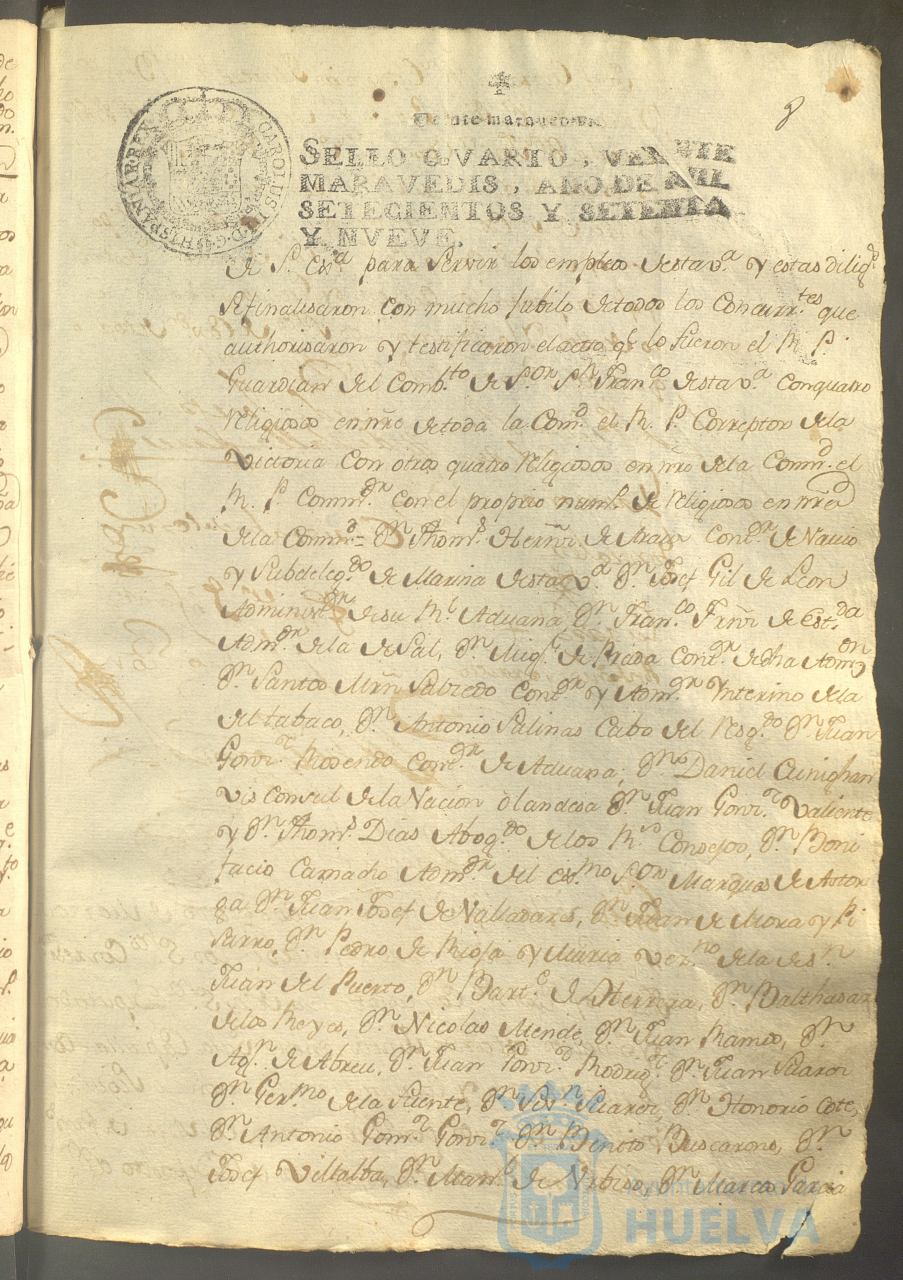 8
Veinte maravedis.
SELLO QVARTO, VEINTE
MARAVEDIS, AÑO DE MIL
SETECIENTOS Y SETENTA
Y NVEVE.
CAROLUS III D.G. HISPANIAR. REX
de S.ª Exª para servir los empleos destavª y estas dilig.ª
sefinalisaron con mucho Jubilo detodos los Concurr.tes que
authorisaron y testificaron elacto q.e lo fueron el R. P.
Guardian del Comb.to de S.or S.n Fran.co destavª conquatro
religiosos en nre detoda la Com.d el R. P. Correptor dela
Victoria con otros quatro religiosos en nre dela Comm.d el
R. P. Comm.dr con el proprio num.º de religiosos en nre
dela Comm.d = D.n Thom.s Herñ.z de Cont.or de Navio
y Subdeleg.do de Marina destavª D.n Josef Gil de Leon
Administ.or desu R.l Aduana D.n Fran.co Frñz de Est.da
Adm.or dela de Sal, D.n Mig.l de Prada Cont.or de dha Adm.on
D.n Santos Mrñ Salzedo Cont.or y Adm.or Ynterino dela
del tabaco, D.n Antonio Salinas Cabo del Resg.do D.n Juan
Gonz.z Rosendo Com.dr de Aduana, D.n Daniel Cunighan
Vis Consul dela Nacion olandesa D.n Juan Gonz.z Valiente
y D.n Thom.s Dias Abog.do delos R.s Consejos, D.n Boni
facio Camacho Adm.or del ex.mo S.or Marques de Astor
ga D.n Juan Josef de Valladares, D.n Juan de Mora y Pi
sarro, D.n Pedro de Rioja y Maria vez.no dela de S.n
Juan del Puerto, D.n Bart.e de Herrera, D.n Balthasar
delos Reyes, D.n Nicolas Mende, D.n Juan Ramos, D.n
Ag.n de Abreu, D.n Juan Gonz.z Rodrig.z D.n Juan Suarez
D.n Ger.mo dela Fuente, D.n Suarez, D.n Honorio Cote,
D.n Antonio Gom.z Gonz.z D.n Benito Buscarons, D.n
Josef Villalba, D.n Man.l de D.n Marcos Garcia
Ayuntamiento de
HUELVA